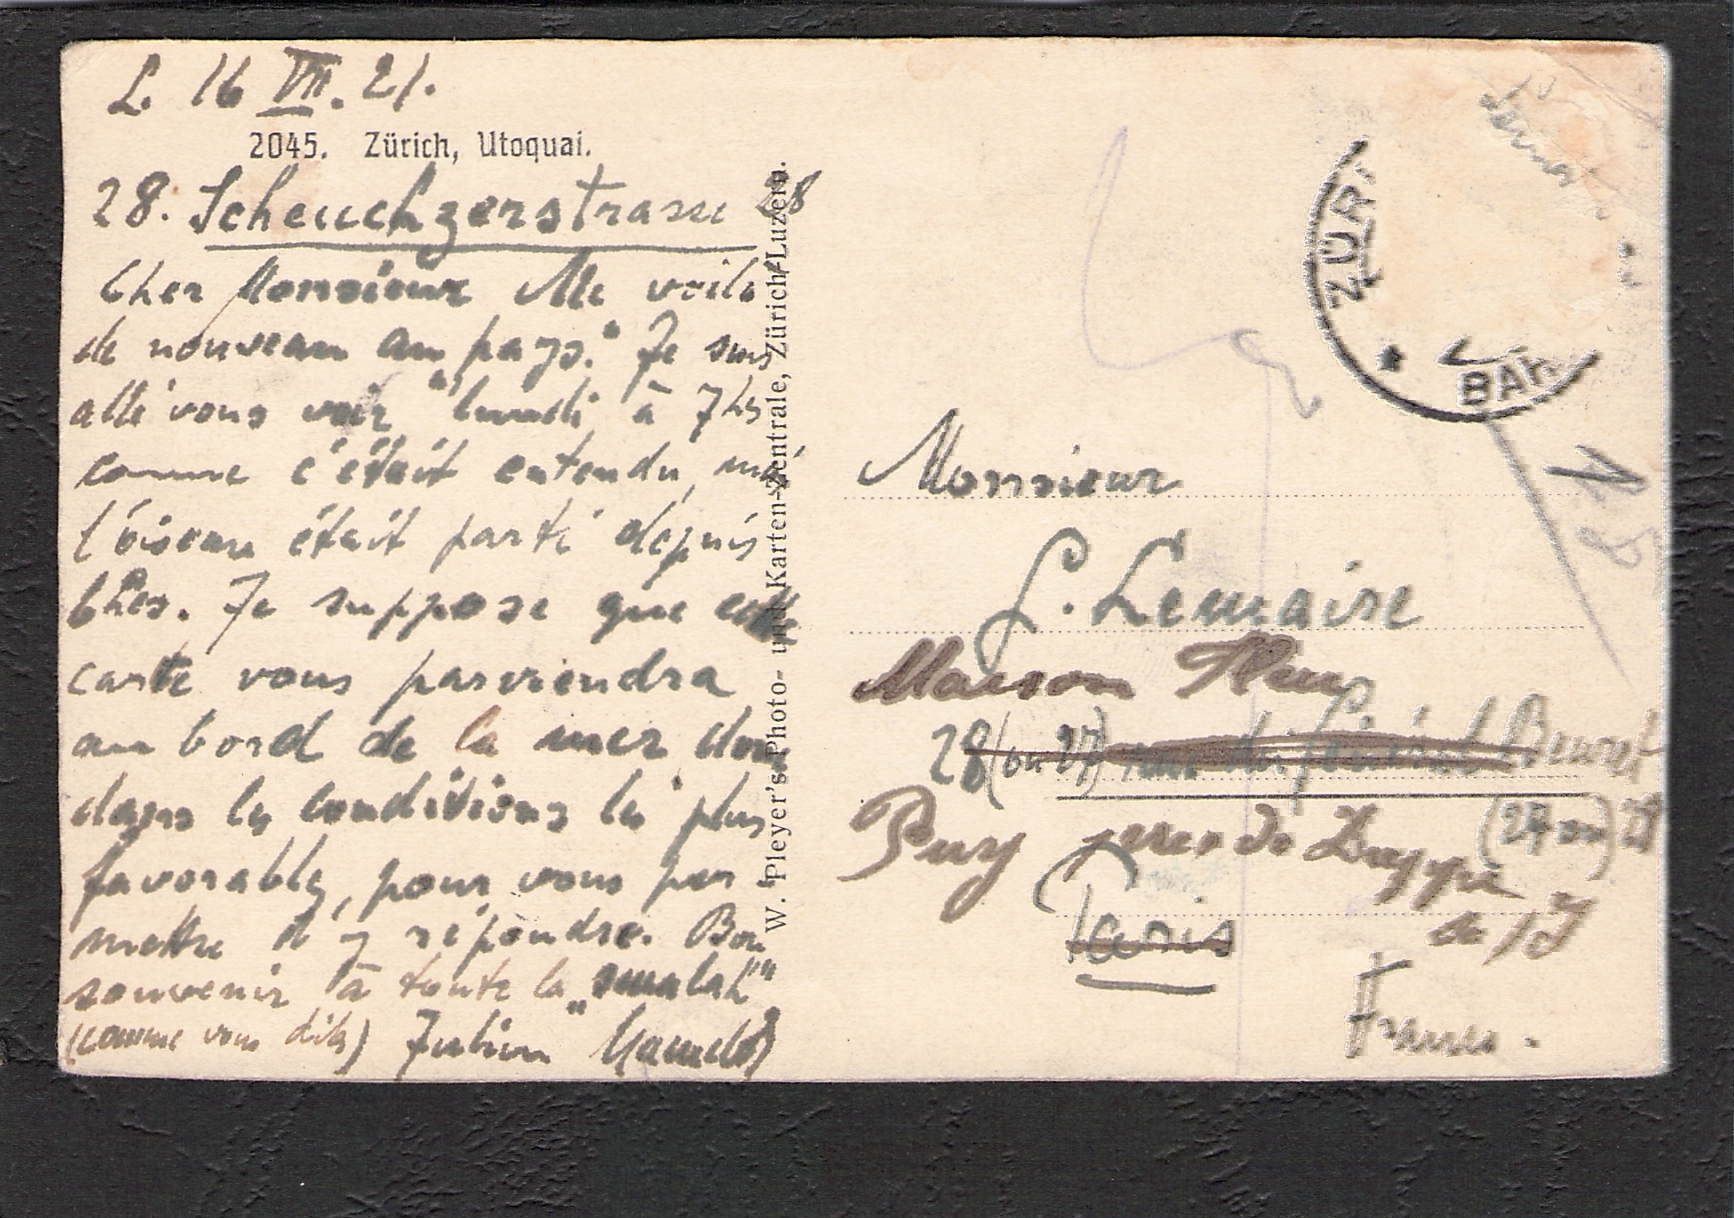 L. 16 VII. 21.
2045. Zürich, Utoquai.
28. Scheuchzerstrasse 28
Cher Monsieur Me voilà
de nouveau au pays." Je suis
allé vous voir lundi à 7 hs
comme c'était entendu, mais
l'oiseau était parti depuis
6 hes. Je suppose que cette
carte vous parviendra
au bord de la mer
dans les conditions les plus
favorables, pour vous per
mettre d'y répondre. Bon
souvenir à toute la „smalah"
(comme vous dites) Julien
W. Pleyer's Photo- und Karten-Zentrale, Zürich-Luzern.
ZÜR
BAH
Monsieur
L. Lemaire
Maison
28 (ou 27) rue du Général Beuret
(27 ou) 28
Puys près de Dieppe
Paris
S I
France.